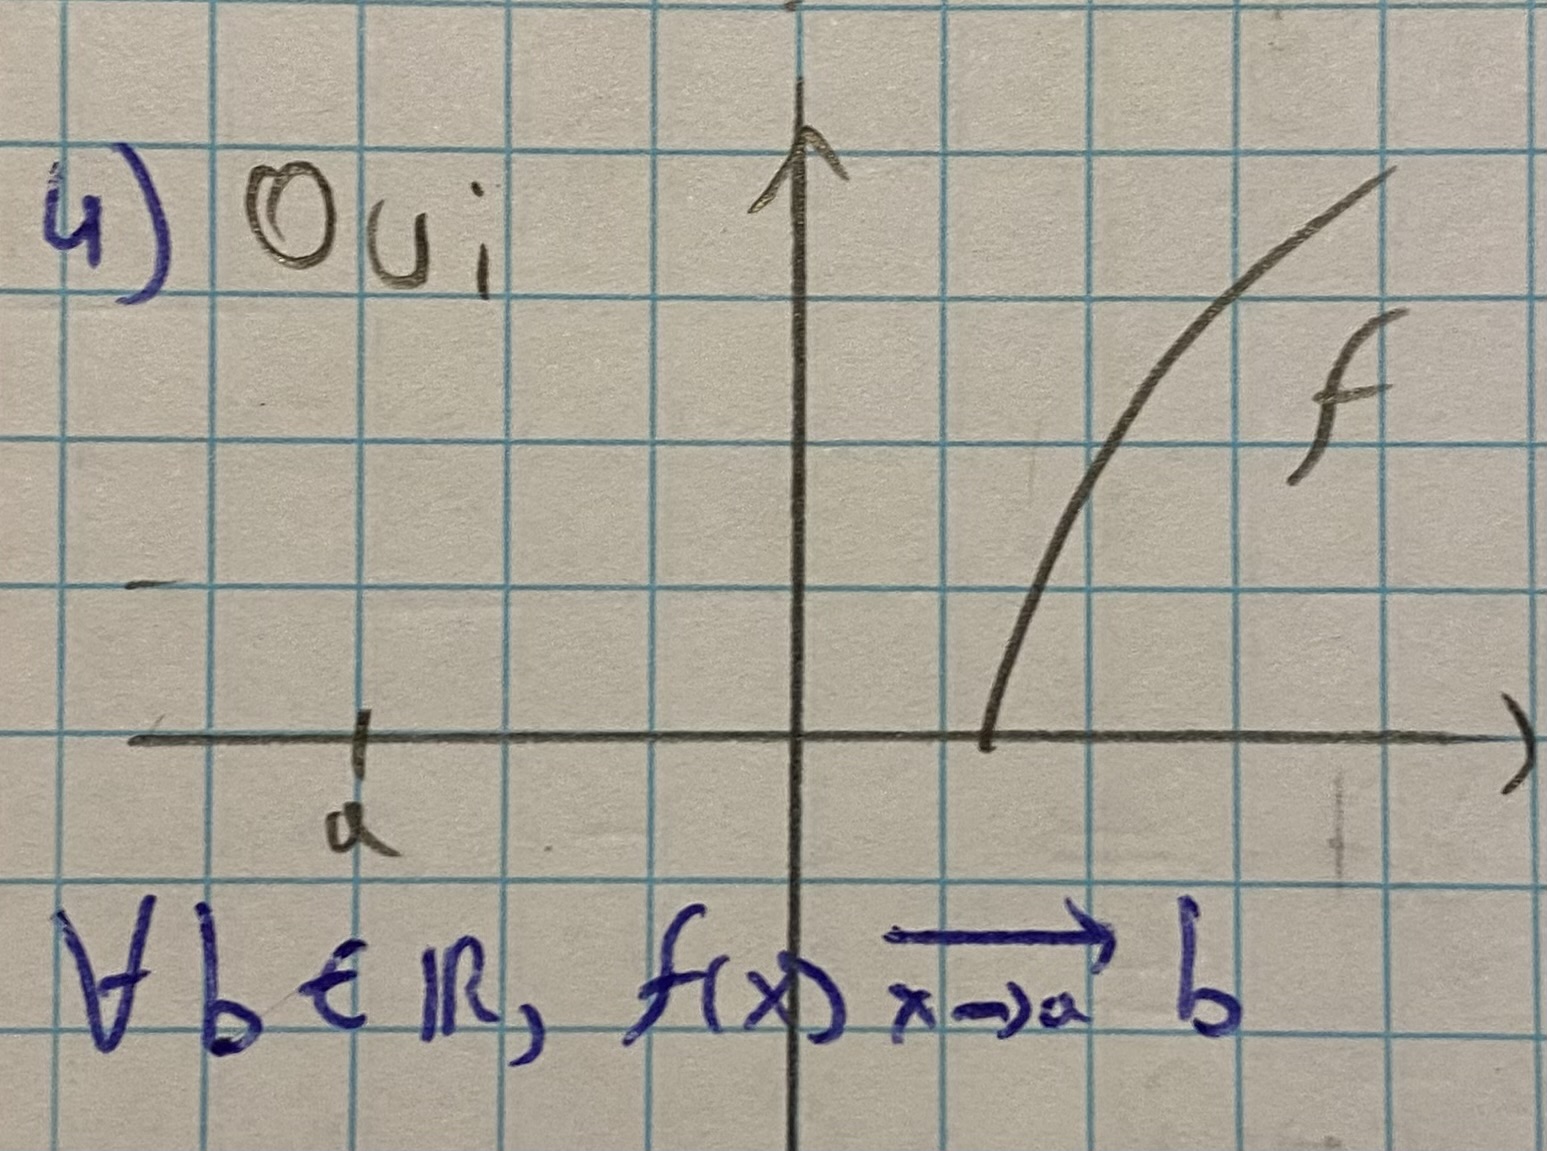 4) Oui
f
a
∀ b ∈ ℝ, f(x) ⟶ b
x→a